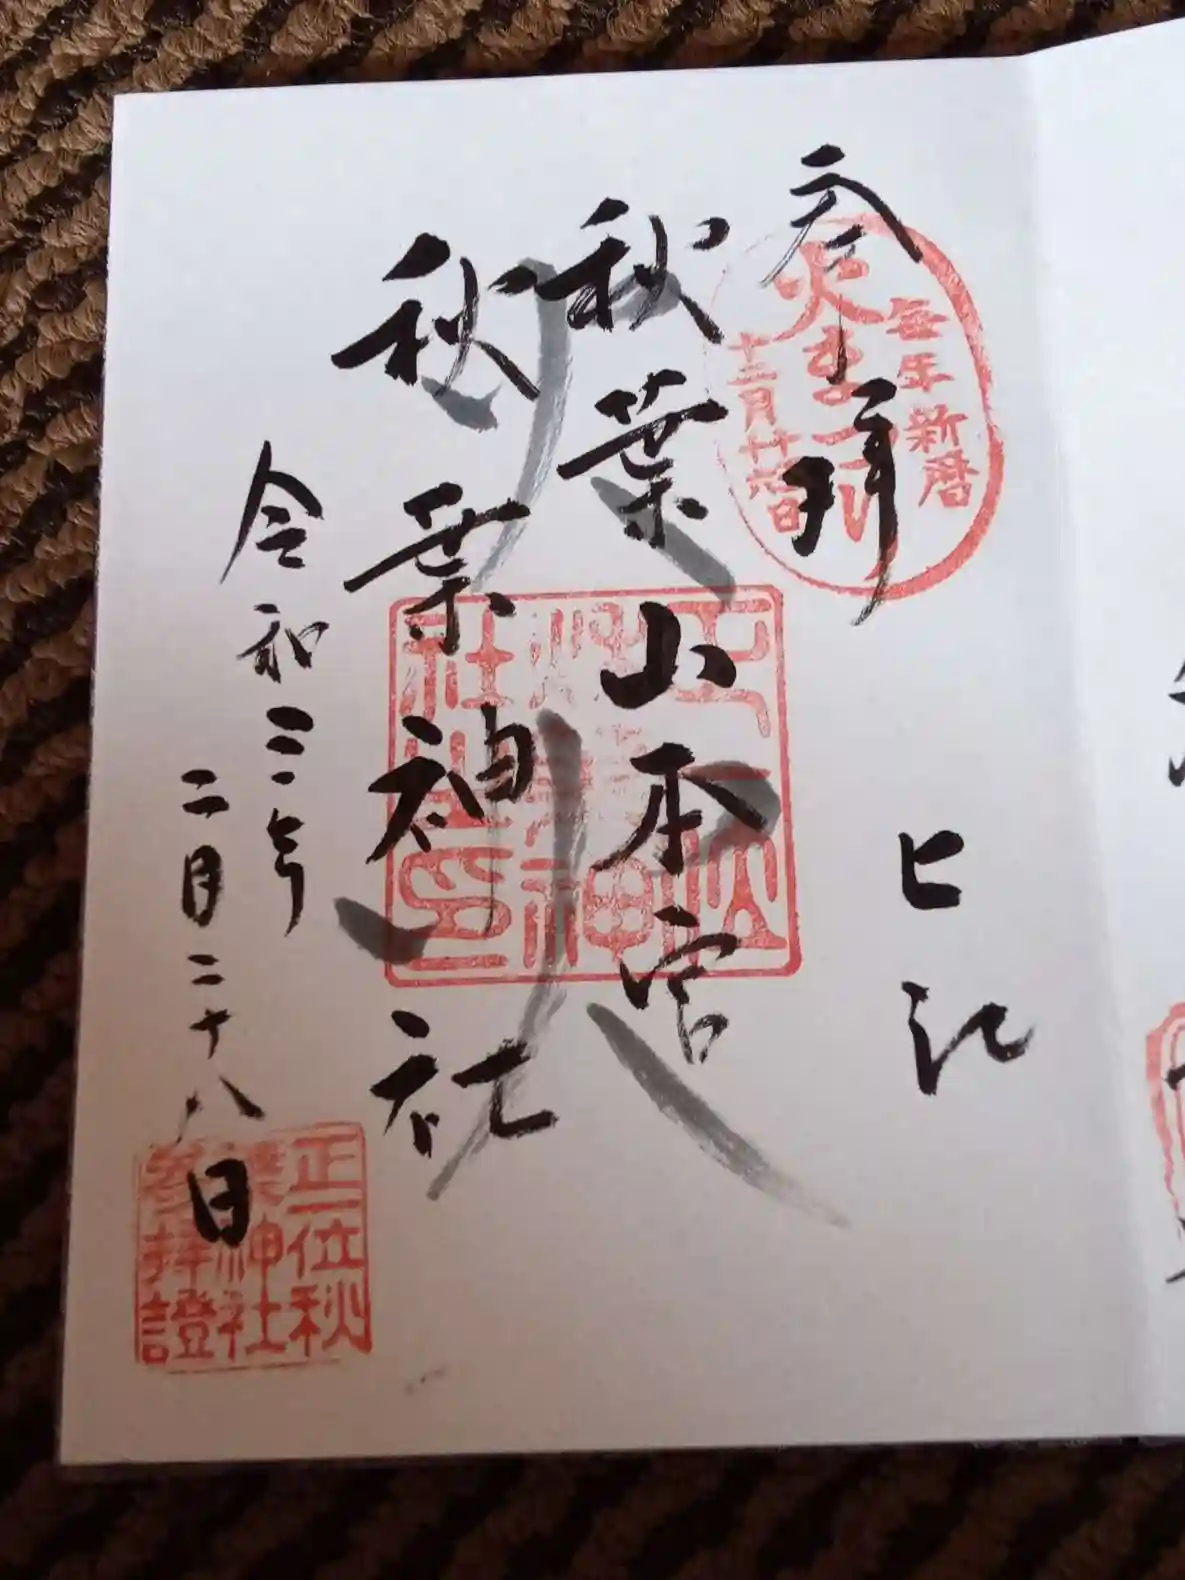 参拝
秋葉山本宮
秋葉神社
令和三年
二月二十八日
毎年新暦
火まつり
十二月十六日
正一位秋
葉神社
参拝證